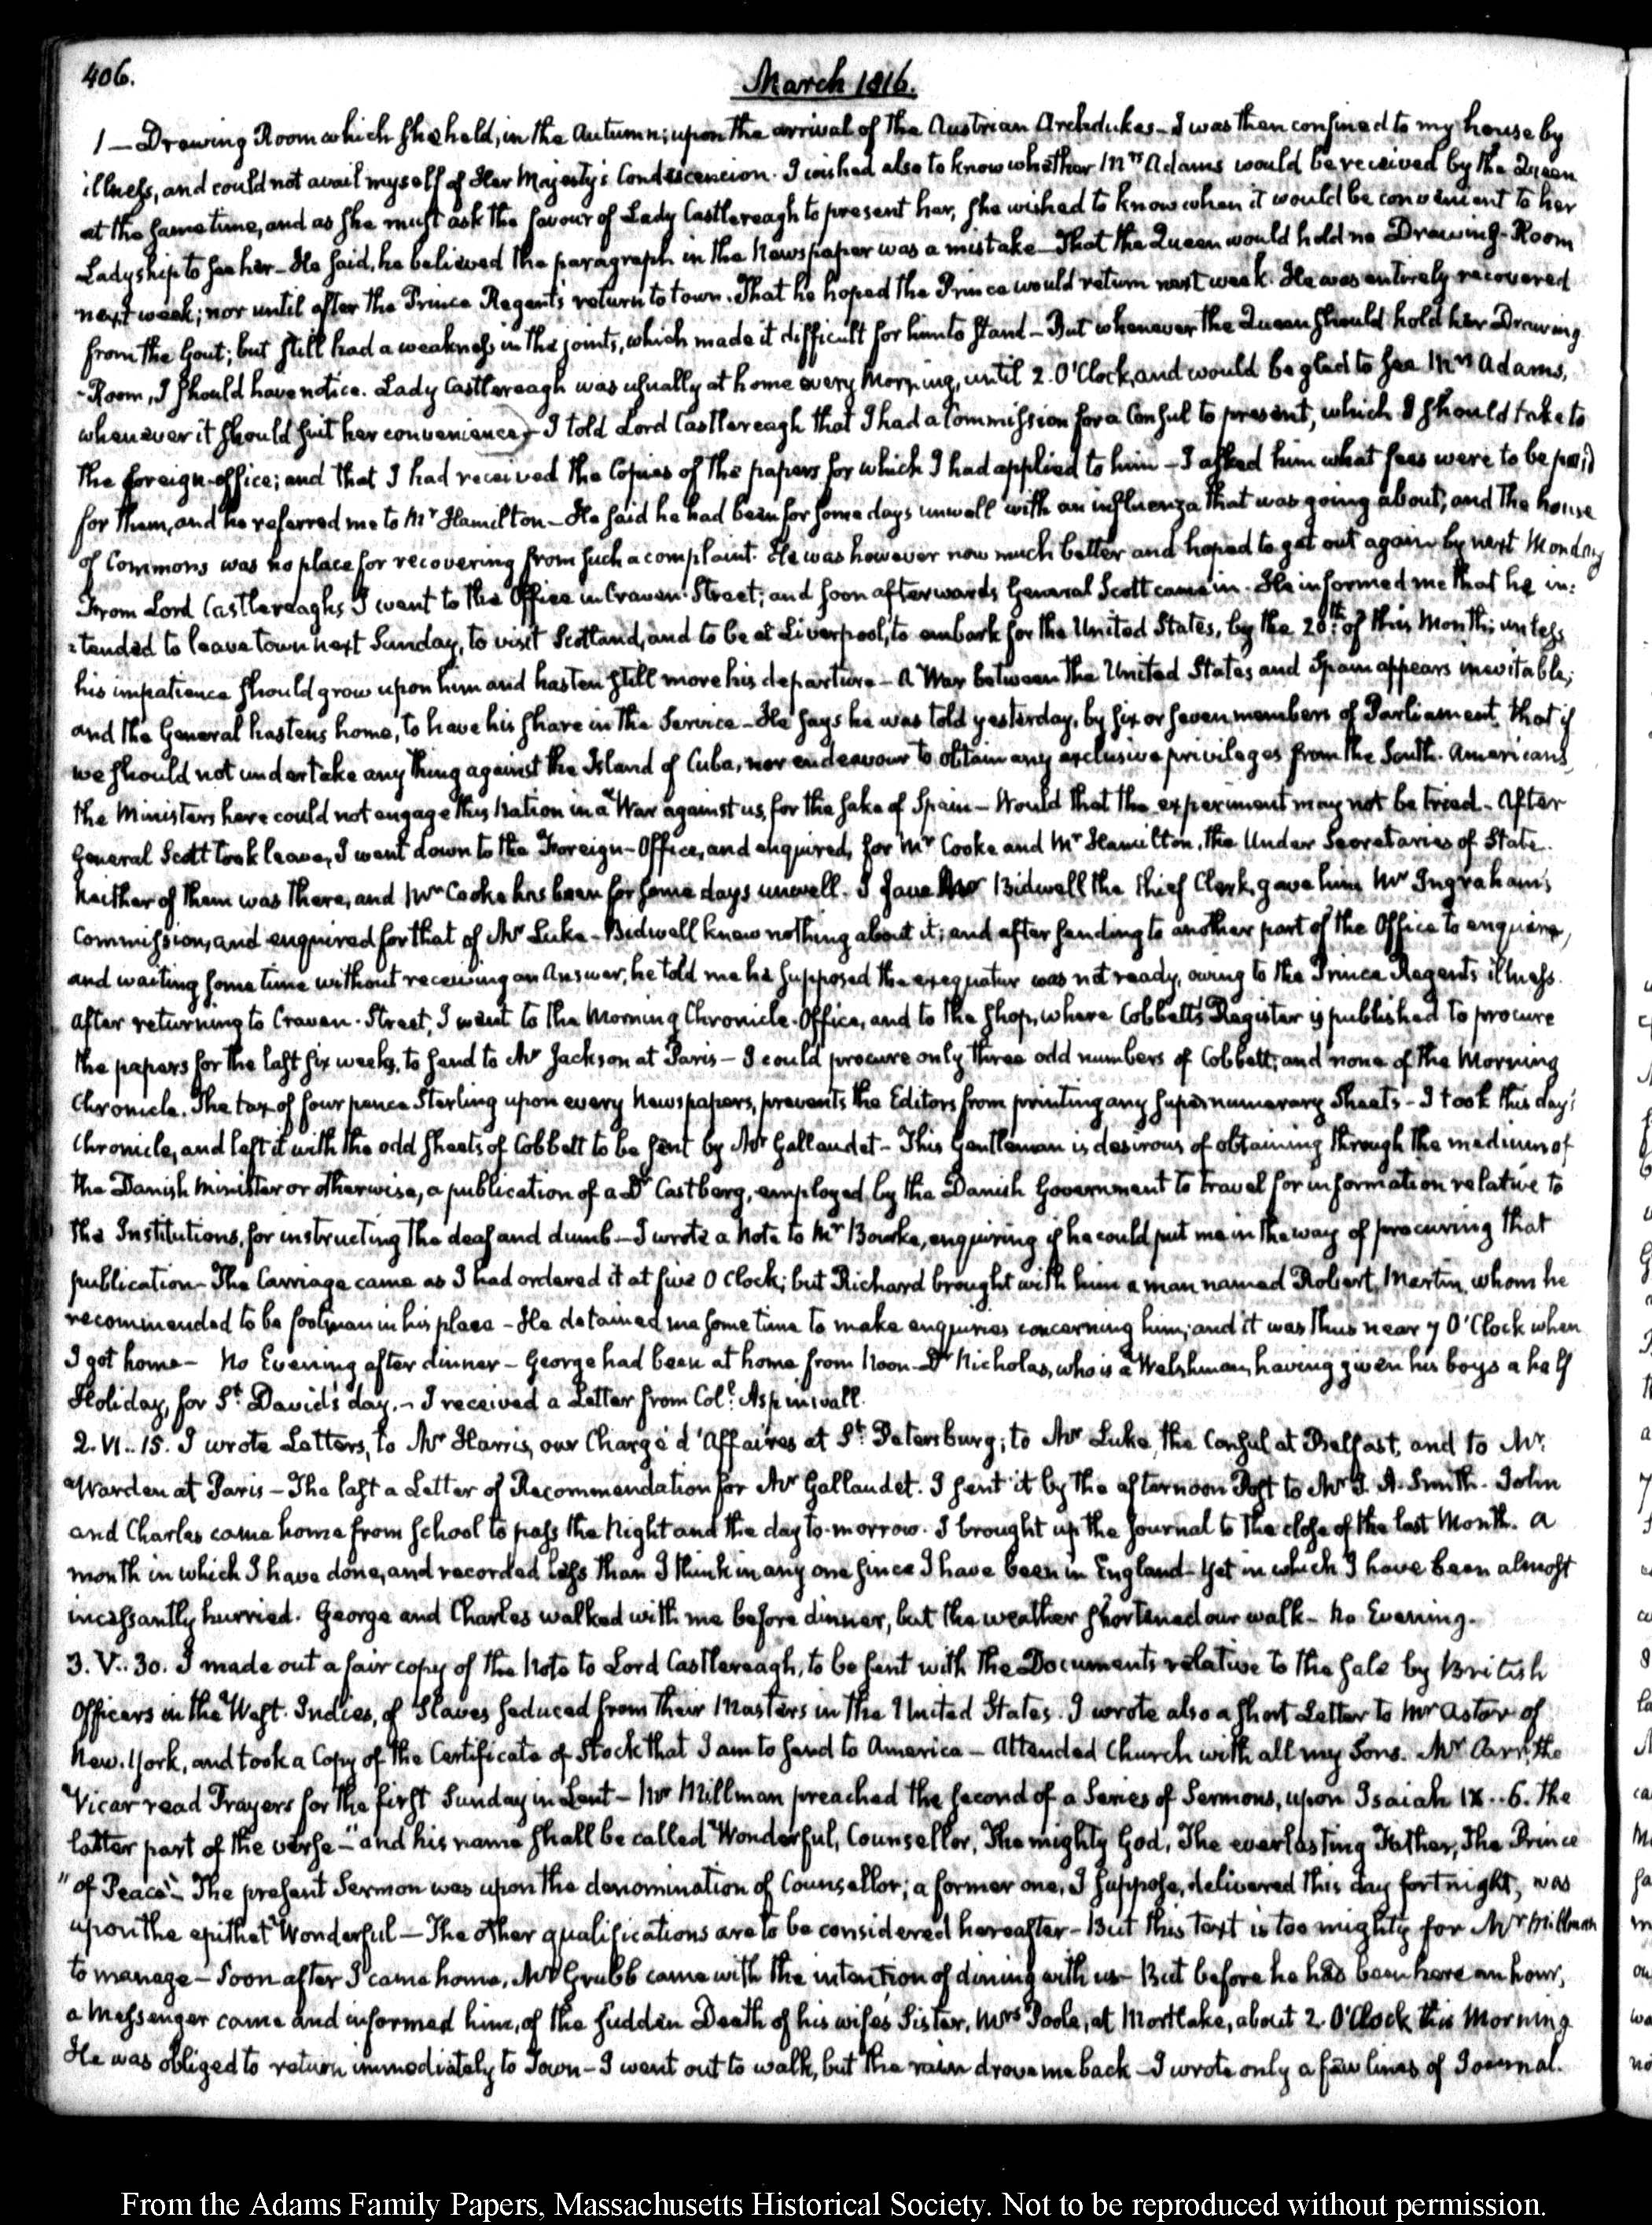 406.
March 1816.
1 — Drawing Room which she held, in the Autumn; upon the arrival of the Austrian Archdukes – I was then confined to my house by
illness, and could not avail myself of Her Majesty's Condescencion. I wished also to know whether Mrs Adams would be received by the Queen
at the same time, and as she must ask the favour of Lady Castlereagh to present her, she wished to know when it would be convenient to her
Ladyship to see her – He said, he believed the paragraph in the Newspaper was a mistake – That the Queen would hold no Drawing-Room
next week; nor until after the Prince Regent's return to town. That he hoped the Prince would return next week. He was entirely recovered
from the Gout; but still had a weakness in the joints, which made it difficult for him to stand – But whenever the Queen should hold her Drawing
-Room, I should have notice. Lady Castlereagh was usually at home every Morning, until 2. O'Clock, and would be glad to see Mrs Adams,
whenever it should suit her convenience – I told Lord Castlereagh that I had a Commission for a Consul to present, which I should take to
the foreign-office; and that I had received the Copies of the papers for which I had applied to him – I asked him what fees were to be paid
for them, and he referred me to Mr Hamilton – He said he had been for some days unwell with an influenza that was going about, and the house
of Commons was no place for recovering from such a complaint. He was however now much better and hoped to get out again by next Monday
From Lord Castlereagh's I went to the Office in Craven-Street; and soon afterwards General Scott came in. He informed me that he in:
:tended to leave town next Sunday, to visit Scotland, and to be at Liverpool, to embark for the United States, by the 20th: of this Month; unless
his impatience should grow upon him and hasten still more his departure – A War between the United States and Spain appears inevitable;
and the General hastens home, to have his share in the Service – He says he was told yesterday, by six or seven members of Parliament, that if
we should not undertake any thing against the Island of Cuba, nor endeavour to obtain any exclusive privileges from the South-Americans,
the Ministers here could not engage this Nation in a War against us, for the sake of Spain – Would that the experiment may not be tried – After
General Scott took leave, I went down to the Foreign-Office, and enquired, for Mr Cooke and Mr Hamilton, the Under Secretaries of State.
Neither of them was there, and Mr Cooke has been for some days unwell. I gave Mr Bidwell the Chief Clerk, gave him Mr Ingraham's
Commission, and enquired for that of Mr Luke – Bidwell knew nothing about it; and after sending to another part of the Office to enquire,
and waiting some time without receiving an Answer, he told me he supposed the exequatur was not ready, owing to the Prince Regent's illness.
After returning to Craven-Street, I went to the Morning Chronicle-Office, and to the shop, where Cobbett's Register is published to procure
the papers for the last six weeks, to send to Mr Jackson at Paris – I could procure only three odd numbers of Cobbett; and none of the Morning
Chronicle. The tax of four pence Sterling upon every Newspapers, prevents the Editors from printing any supernumerary Sheets – I took this day's
Chronicle, and left it with the odd sheets of Cobbett to be sent by Mr Gallaudet – This Gentleman is desirous of obtaining through the medium of
the Danish Minister or otherwise, a publication of a Dr Castberg, employed by the Danish Government to travel for information relative to
the Institutions, for instructing the deaf and dumb – I wrote a Note to Mr Bourke, enquiring if he could put me in the way of procuring that
publication – The Carriage came as I had ordered it at five O Clock; but Richard brought with him a man named Robert Martin, whom he
recommended to be footman in his place – He detained me some time to make enquiries concerning him; and it was thus near 7 O'Clock when
I got home – No Evening after dinner – George had been at home from Noon – Dr Nicholas, who is a Welshman, having given his boys a half
Holiday, for St. David's day. – I received a Letter from Coll. Aspinwall.
2. VI.. 15. I wrote Letters, to Mr Harris, our Chargé d'Affaires at St. Petersburg; to Mr Luke, the Consul at Belfast, and to Mr.
Warden at Paris – The last a Letter of Recommendation for Mr Gallaudet. I sent it by the afternoon Post to Mr J. A. Smith. John
and Charles came home from School to pass the Night and the day to-morrow. I brought up the Journal to the close of the last Month. A
month in which I have done, and recorded less than I think in any one since I have been in England – Yet in which I have been almost
incessantly hurried. George and Charles walked with me before dinner, but the weather shortened our walk – No Evening.
3. V.. 30. I made out a fair copy of the Note to Lord Castlereagh, to be sent with the Documents relative to the sale by British
Officers in the West-Indies, of Slaves seduced from their Masters in the United States. I wrote also a short Letter to Mr Astor of
New-York, and took a Copy of the Certificate of Stock that I am to send to America – Attended Church with all my Sons. Mr Carr, the
Vicar read Prayers for the first Sunday in Lent – Mr Millman preached the second of a Series of Sermons, upon Isaiah IX..6. The
latter part of the verse – "and his name shall be called Wonderful, Counsellor, The mighty God, The everlasting Father, The Prince
"of Peace" – The present Sermon was upon the denomination of Counsellor; a former one, I suppose, delivered this day fortnight, was
upon the epithet Wonderful – The other qualifications are to be considered hereafter – But this text is too mighty for Mr Millman
to manage – Soon after I came home, Mr Grubb came with the intention of dining with us – But before he had been here an hour,
a Messenger came and informed him, of the sudden Death of his wife's Sister, Mrs Poole, at Mortlake, about 2. O'Clock this Morning
He was obliged to return immediately to Town – I went out to walk, but the rain drove me back – I wrote only a few lines of Journal.
From the Adams Family Papers, Massachusetts Historical Society. Not to be reproduced without permission.